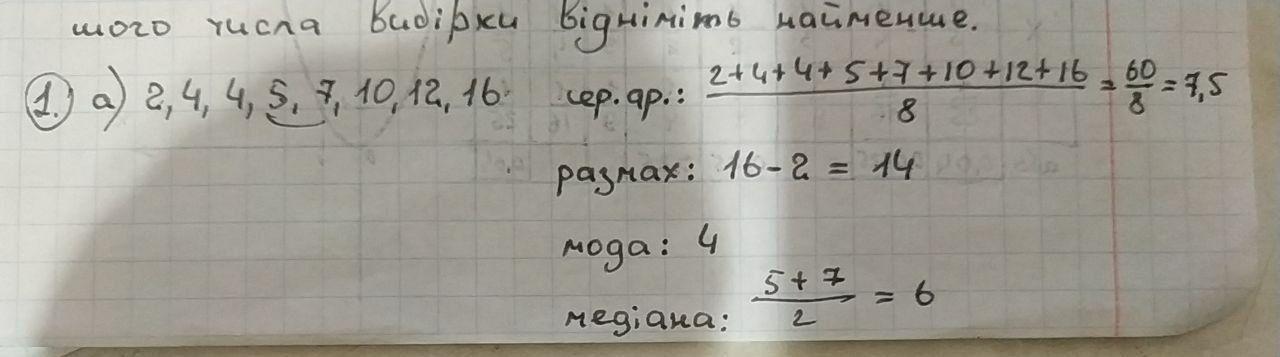 шого числа вибірки відніміть найменше.
1. а) 2, 4, 4, 5, 7, 10, 12, 16. сер. ар.: (2+4+4+5+7+10+12+16)/8 = 60/8 = 7,5
размах: 16 - 2 = 14
мода: 4
медіана: (5+7)/2 = 6